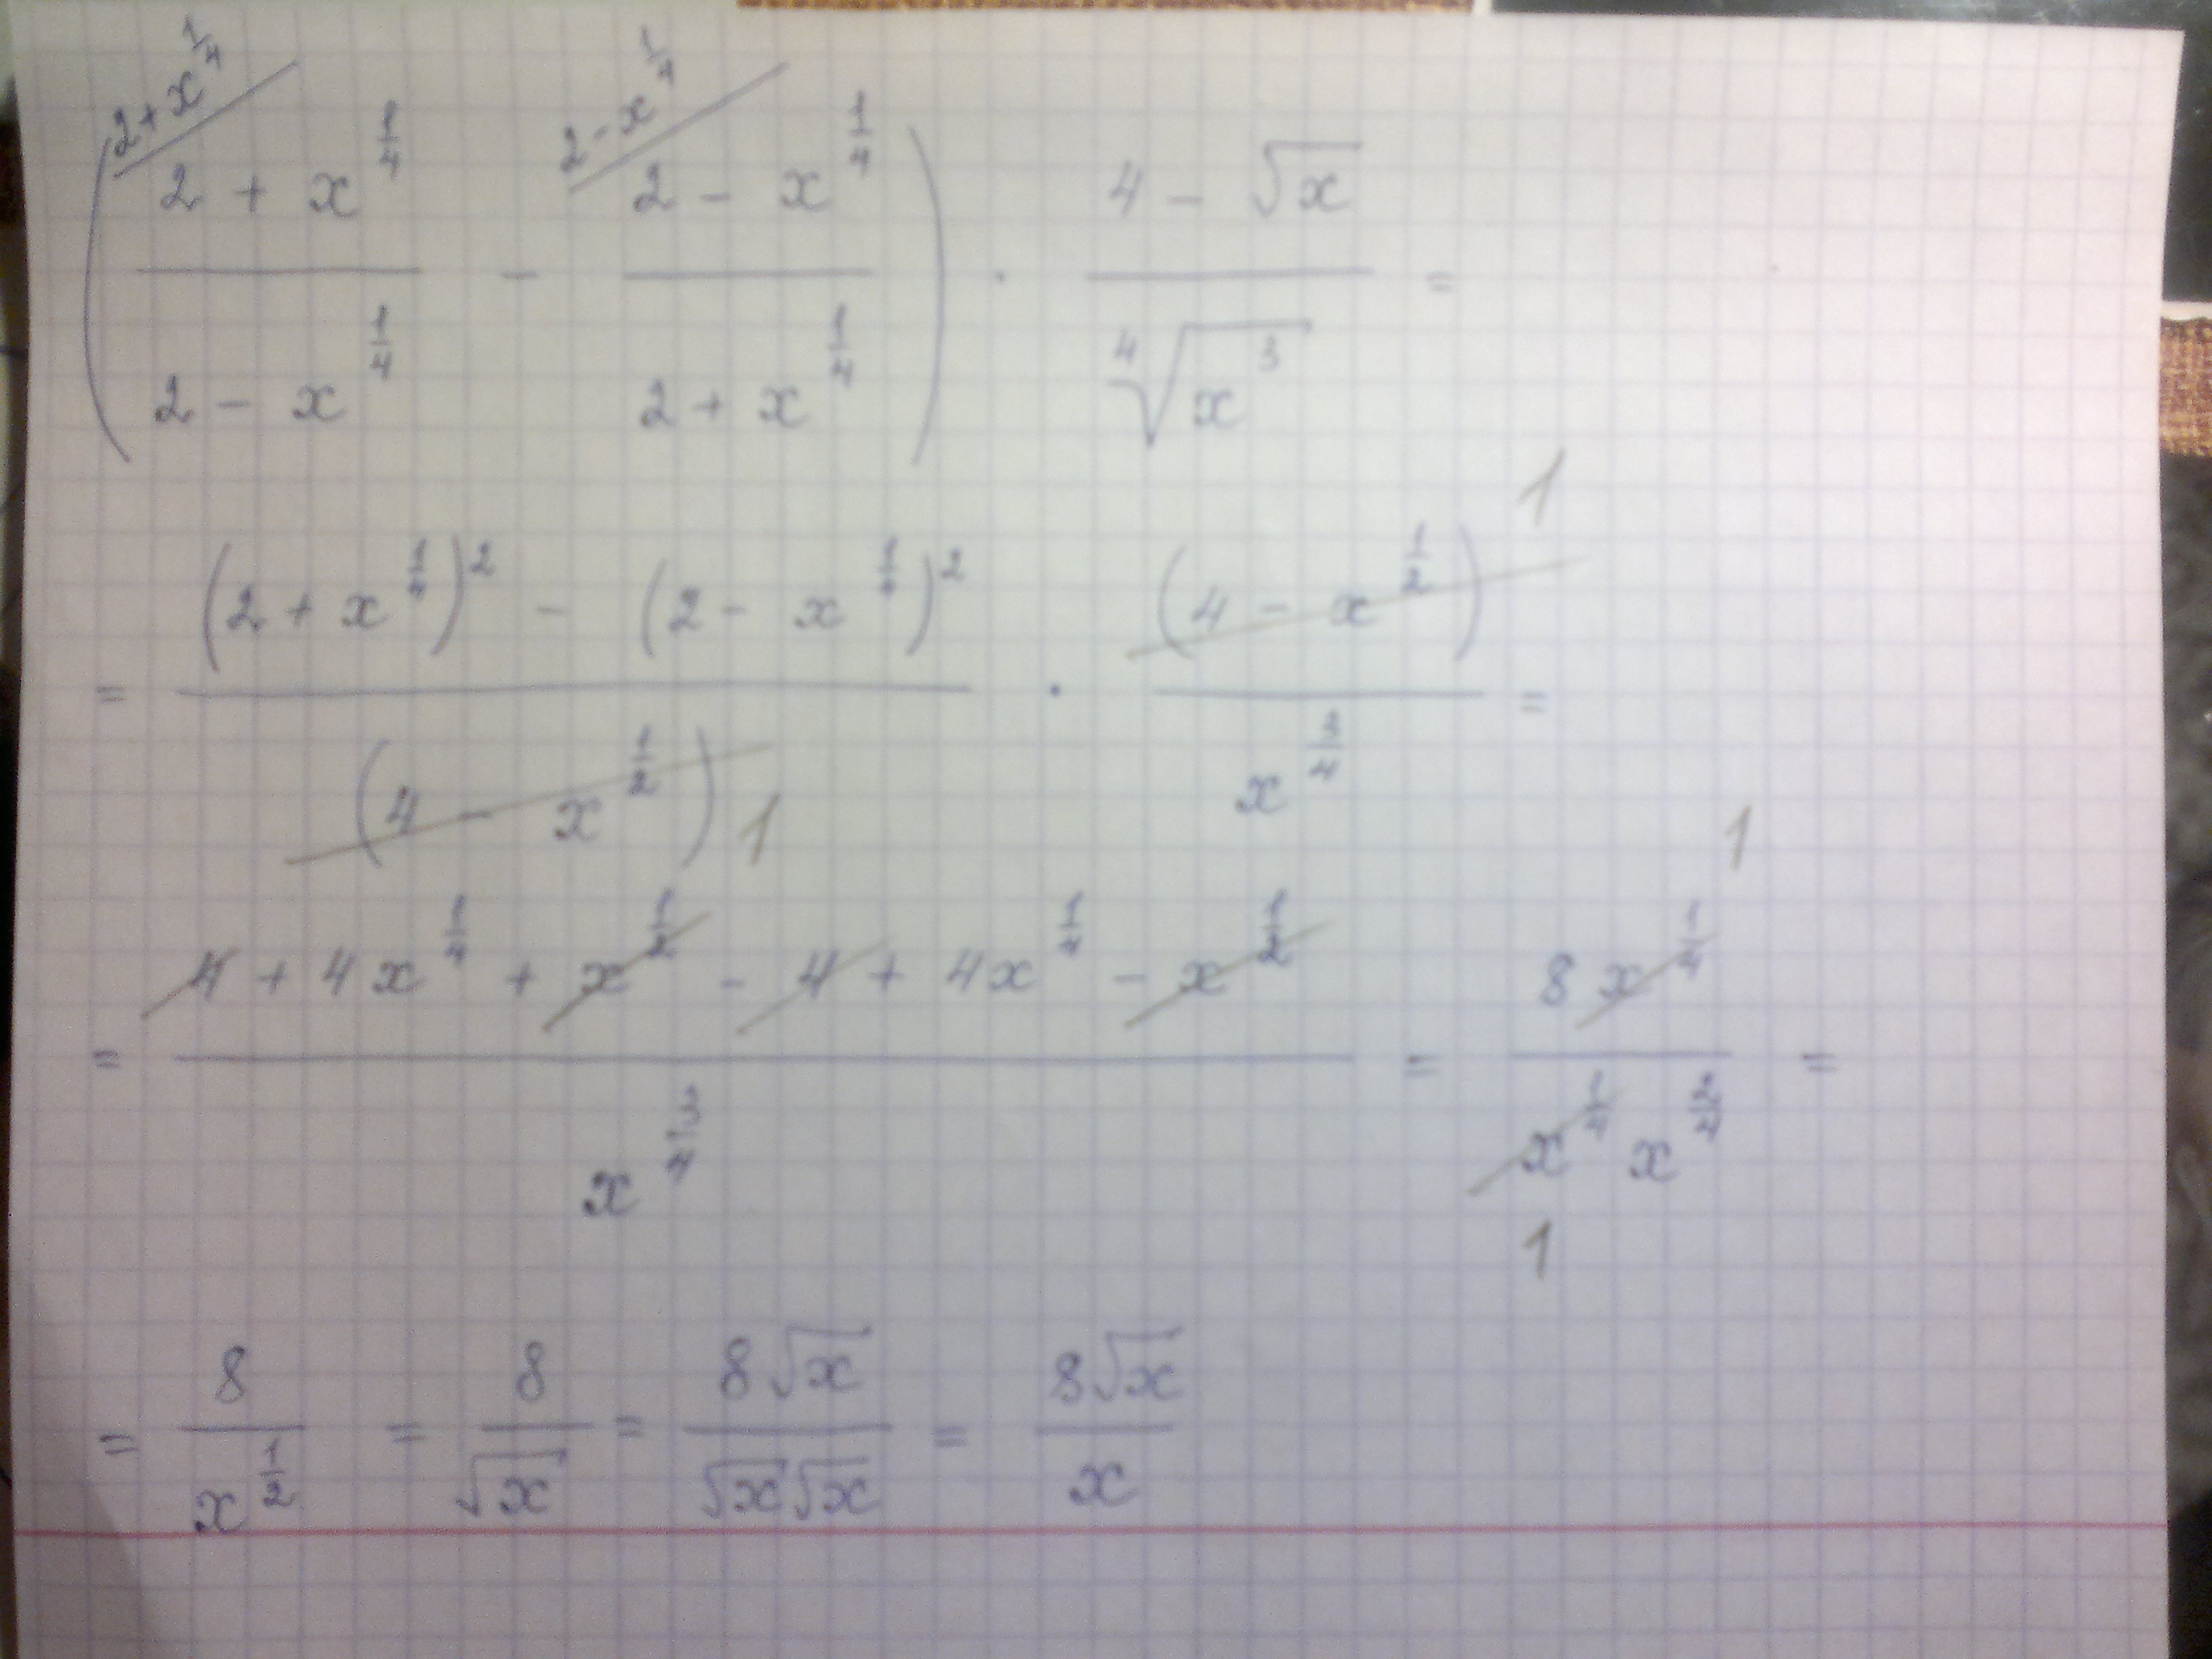 ( 2+x^(1/4)⟋ (2 + x^(1/4))/(2 − x^(1/4)) − 2−x^(1/4)⟋ (2 − x^(1/4))/(2 + x^(1/4)) ) · (4 − √x)/(⁴√(x³)) =
= ((2 + x^(1/4))² − (2 − x^(1/4))²)/(4 − x^(1/2)) 1 · (4 − x^(1/2)) 1/(x^(3/4)) =
= (4 + 4x^(1/4) + x^(1/2) − 4 + 4x^(1/4) − x^(1/2))/(x^(3/4)) = (8x^(1/4) 1)/(x^(1/4) 1 x^(2/4)) =
= 8/x^(1/2) = 8/√x = 8√x/(√x√x) = 8√x/x